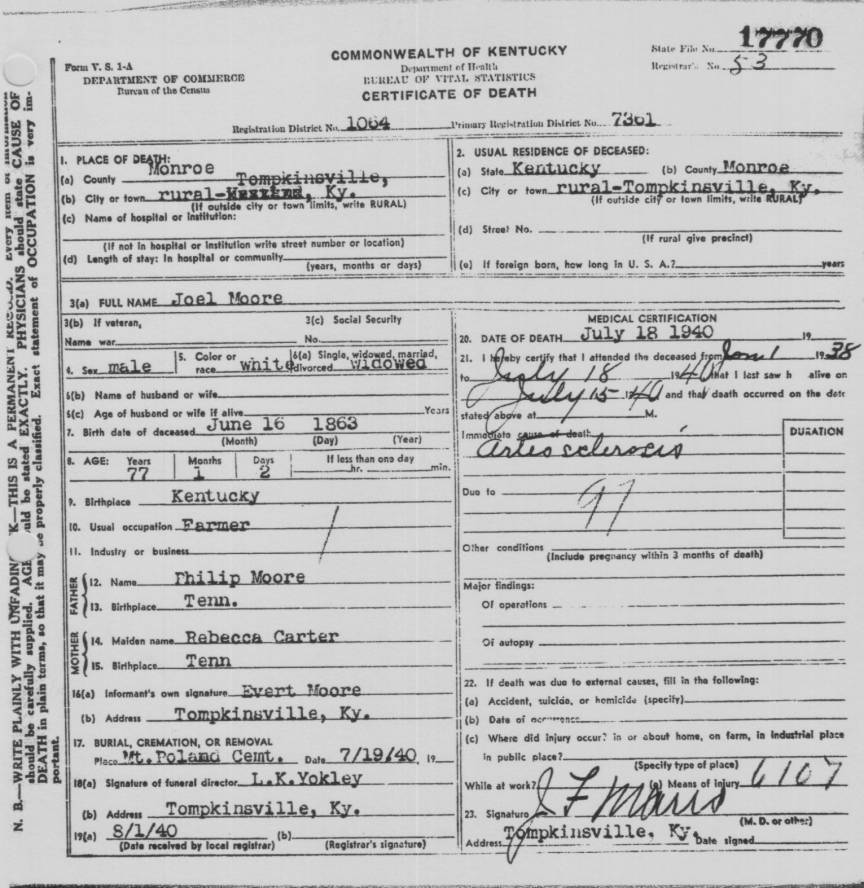 17770
State File No.
Registrar's No. 53
Form V. S. 1-A
DEPARTMENT OF COMMERCE
Bureau of the Census
COMMONWEALTH OF KENTUCKY
Department of Health
BUREAU OF VITAL STATISTICS
CERTIFICATE OF DEATH
Registration District No. 1064 Primary Registration District No. 7361
N. B.—WRITE PLAINLY WITH UNFADING K—THIS IS A PERMANENT RECORD. Every item of information
should be carefully supplied. AGE should be stated EXACTLY. PHYSICIANS should state CAUSE OF
DEATH in plain terms, so that it may be properly classified. Exact statement of OCCUPATION is very im-
portant.
1. PLACE OF DEATH:
(a) County Monroe
Tompkinsville,
(b) City or town rural- Ky.
(If outside city or town limits, write RURAL)
(c) Name of hospital or institution:
(If not in hospital or institution write street number or location)
(d) Length of stay: In hospital or community
(years, months or days)
2. USUAL RESIDENCE OF DECEASED:
(a) State Kentucky (b) County Monroe
(c) City or town rural-Tompkinsville, Ky.
(If outside city or town limits, write RURAL)
(d) Street No.
(If rural give precinct)
(e) If foreign born, how long in U. S. A.? years
3(a) FULL NAME Joel Moore
3(b) If veteran, 3(c) Social Security
Name war No.
4. Sex male 5. Color or race white 6(a) Single, widowed, married, divorced widowed
6(b) Name of husband or wife
6(c) Age of husband or wife if alive Years
7. Birth date of deceased June 16 1863
(Month) (Day) (Year)
8. AGE: Years Months Days If less than one day
77 1 2 hr. min.
9. Birthplace Kentucky
10. Usual occupation Farmer
11. Industry or business
FATHER
12. Name Philip Moore
13. Birthplace Tenn.
MOTHER
14. Maiden name Rebecca Carter
15. Birthplace Tenn
16(a) Informant's own signature Evert Moore
(b) Address Tompkinsville, Ky.
17. BURIAL, CREMATION, OR REMOVAL
Place Mt.Poland Cemt. Date 7/19/40, 19
18(a) Signature of funeral director L.K.Yokley
(b) Address Tompkinsville, Ky.
19(a) 8/1/40 (b)
(Date received by local registrar) (Registrar's signature)
MEDICAL CERTIFICATION
20. DATE OF DEATH July 18 1940 19
21. I hereby certify that I attended the deceased from Jan 1 1938
to July 18 1940 that I last saw h alive on
July 15-1940 and that death occurred on the date
stated above at M.
Immediate cause of death DURATION
Arteosclerocis
Due to
97
Other conditions
(Include pregnancy within 3 months of death)
Major findings:
Of operations
Of autopsy
22. If death was due to external causes, fill in the following:
(a) Accident, suicide, or homicide (specify)
(b) Date of occurrence
(c) Where did injury occur? in or about home, on farm, in industrial place
in public place?
(Specify type of place)
While at work? (e) Means of injury 6107
23. Signature J F Marrs
(M. D. or other)
Address Tompkinsville, Ky. Date signed